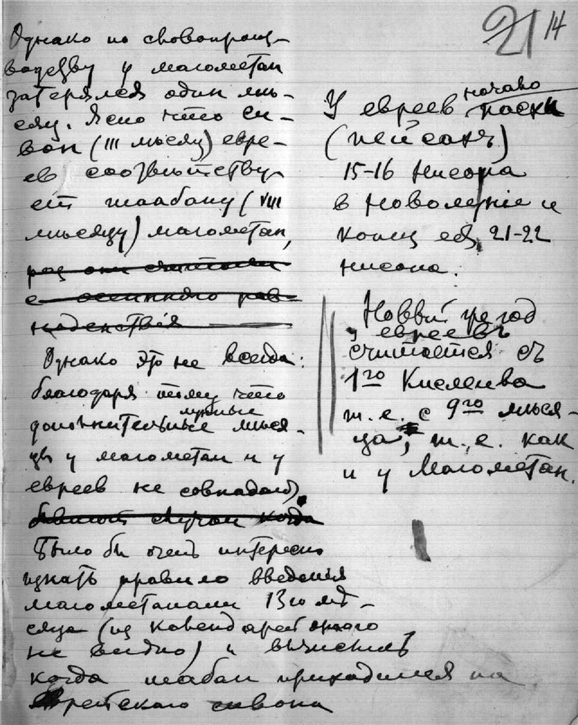 21 14
Однако по
водству у магометан
затерялся один мѣ-
сяц. Ясно что си-
ван (III мѣсяц) евре-
ев соотвѣтству-
ет шаабану (VIII
мѣсяцу) магометан,
раз они считали
с осеннего рав-
ноденствия
Однако это не всегда:
благодаря тому что
лунные
дополнительные мѣся-
цы у магометан и у
евреев не совпадают,
бывают случаи когда
Было бы очень интересно
узнать правило введенія
магометанами 13го мѣ-
сяца (из календарей
не видно) и вычислить
когда шабан приходился на
еврейского сивана
начало
У евреев пасхи
(пейсахъ)
15-16 нисана
в новолуніе и
конец ея 21-22
нисана.
Новый год
у евреевъ
считается съ
1го Кислева
т.е. с 9го мѣся-
ца, т.е. как
и у Магометан.